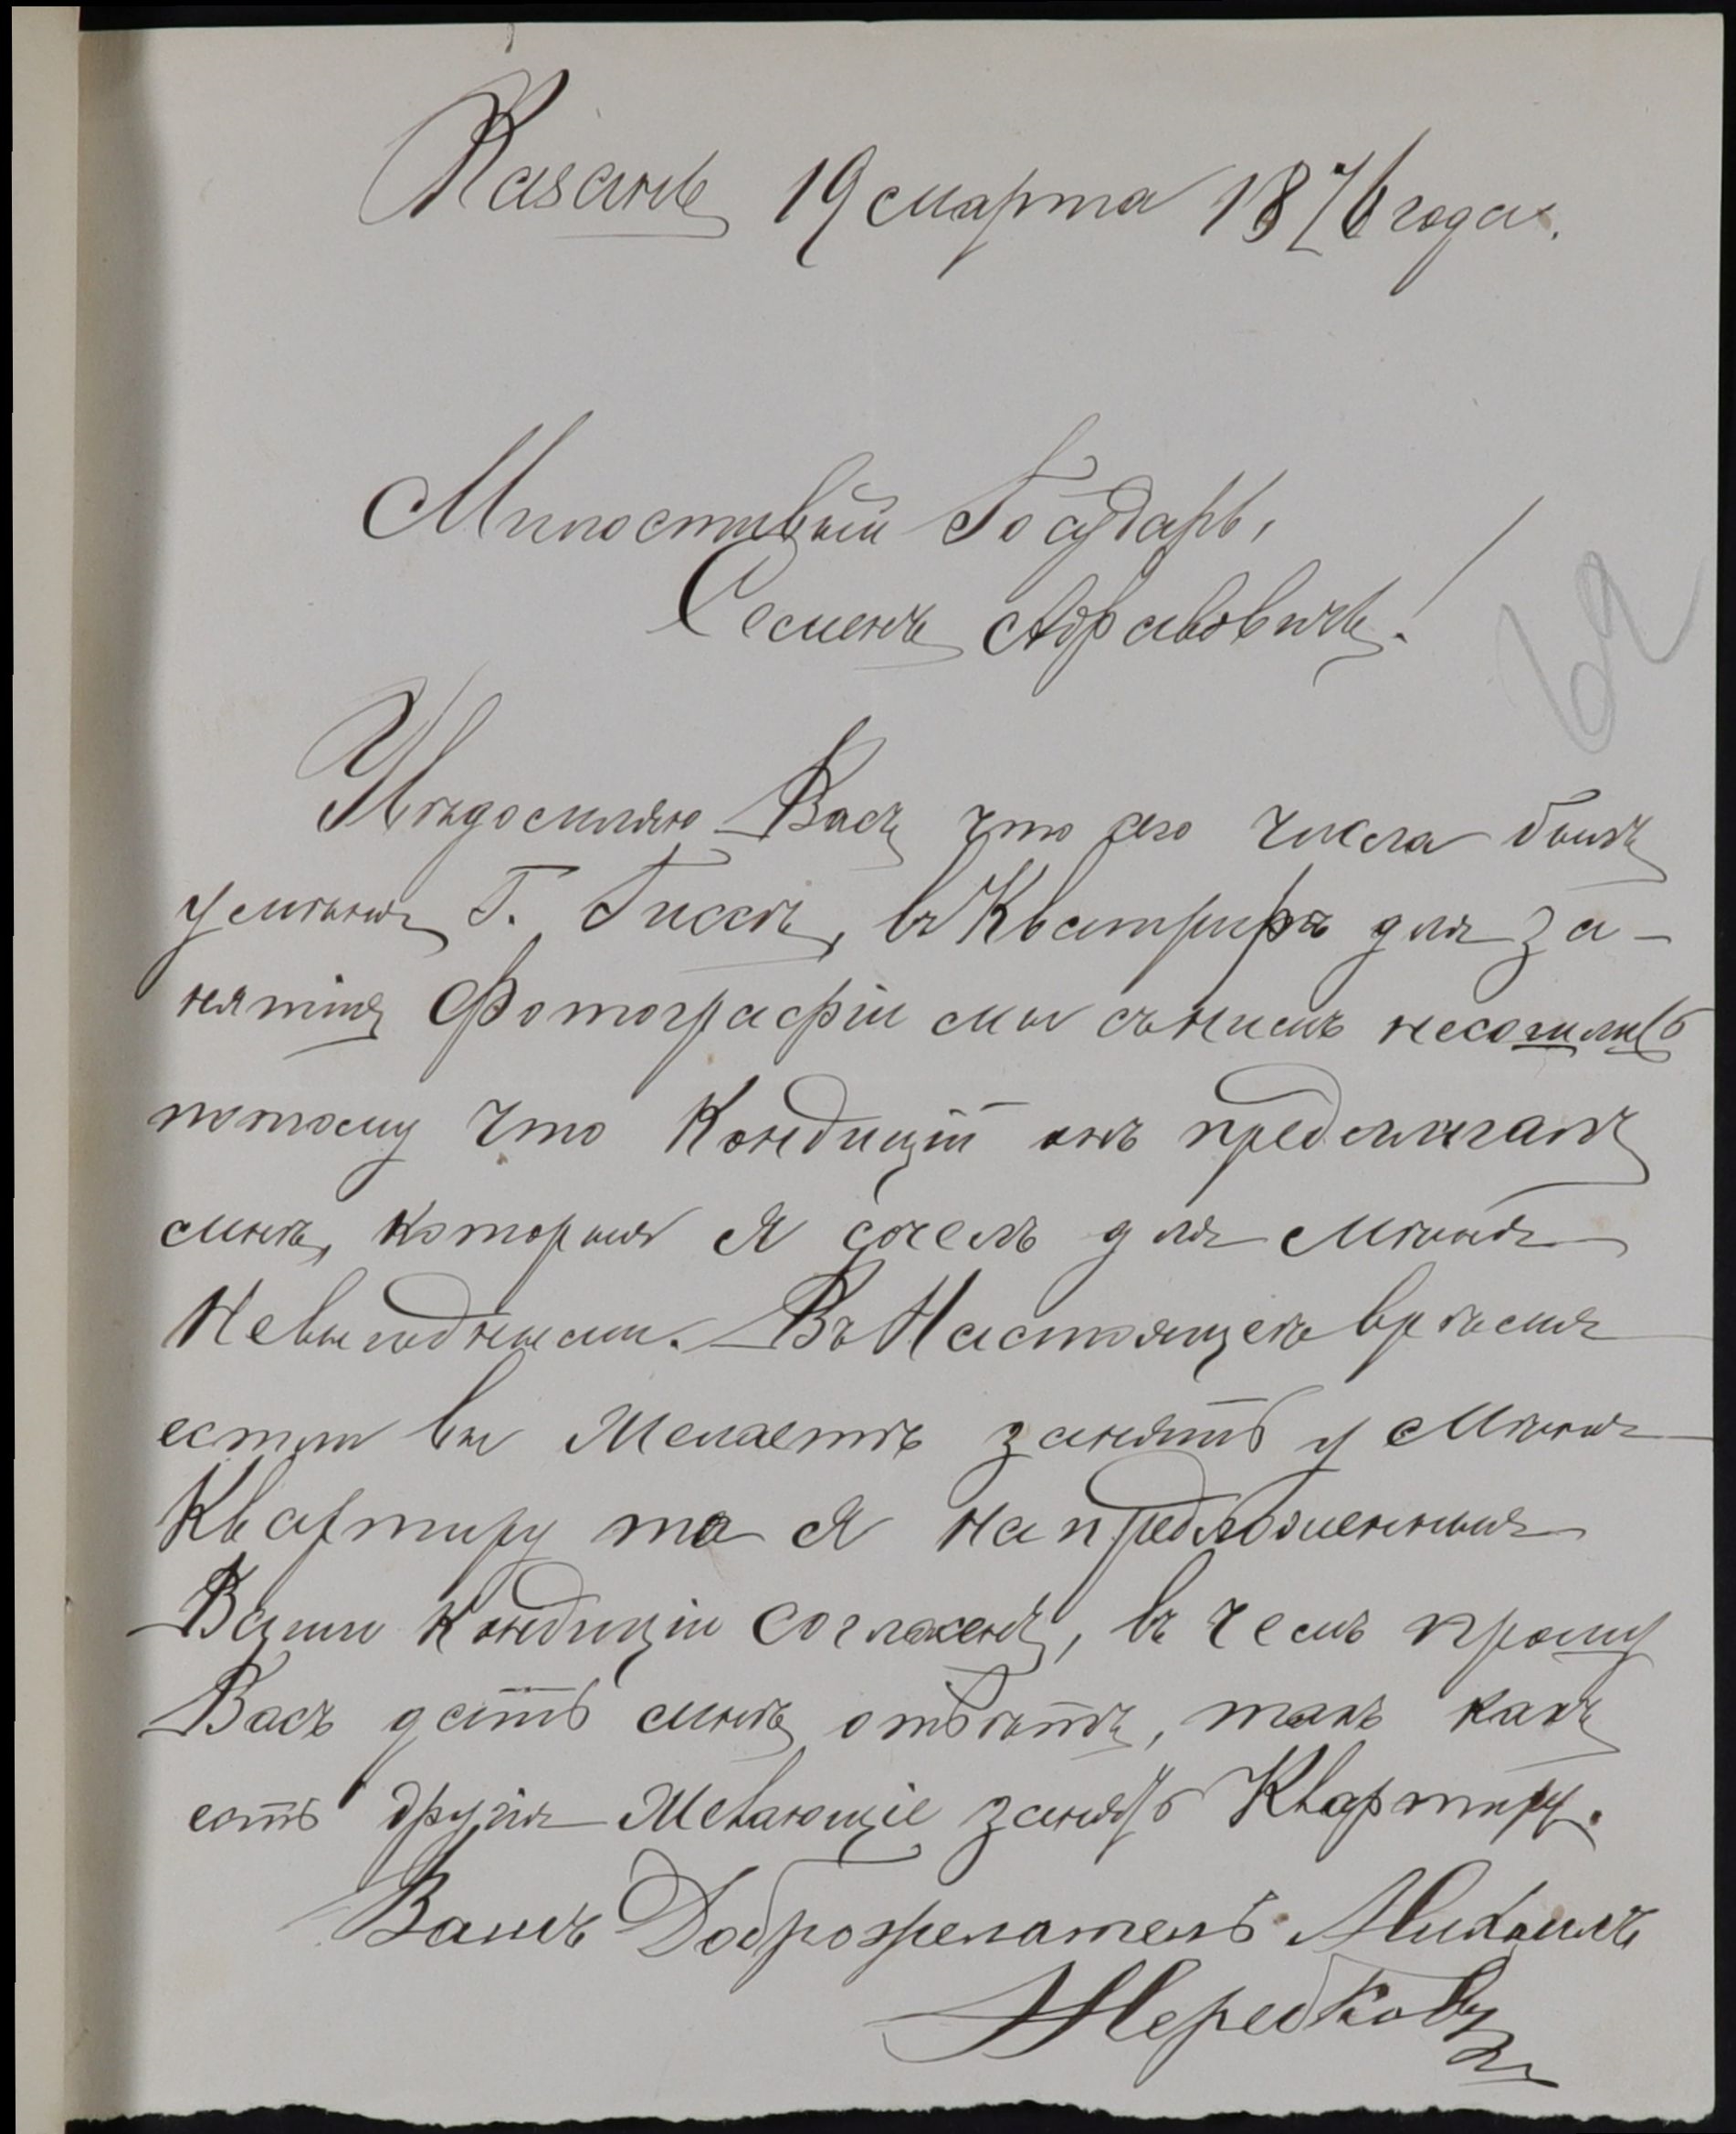 Казань 19 марта 1876 года.
Милостивый Государь,
Семенъ Абрамовичъ!
62
Увѣдомляю Васъ что сего числа былъ
у мѣня Г. Гиссъ, въ Квартирѣ для за-
нятія Фотографіи мы съ нимъ несошлись
потому что Кондицій онъ предлагалъ
мнѣ, которыя я сочелъ для Мѣня
Невыгодными. Въ Настоящее врѣмя
естли вы Желаетѣ занять у Мѣня
Квартиру то я на предложенныя
Вами Кондиціи согласенъ, въ чемъ прошу
Васъ дать мнѣ отвѣтъ, такъ какъ
есть другія Желающіе занять Квартиру.
Вашъ Доброжелатель Михаилъ